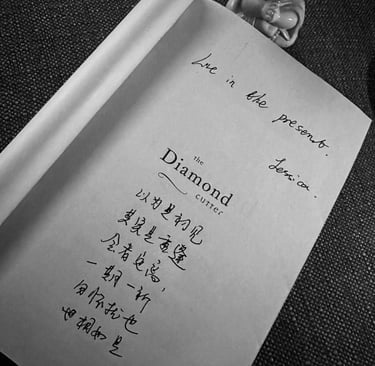 Live in the present.
Jessica.
the
Diamond
cutter
以为是初见
其实是重逢
会者定离，
一期一祈
也
世相如是